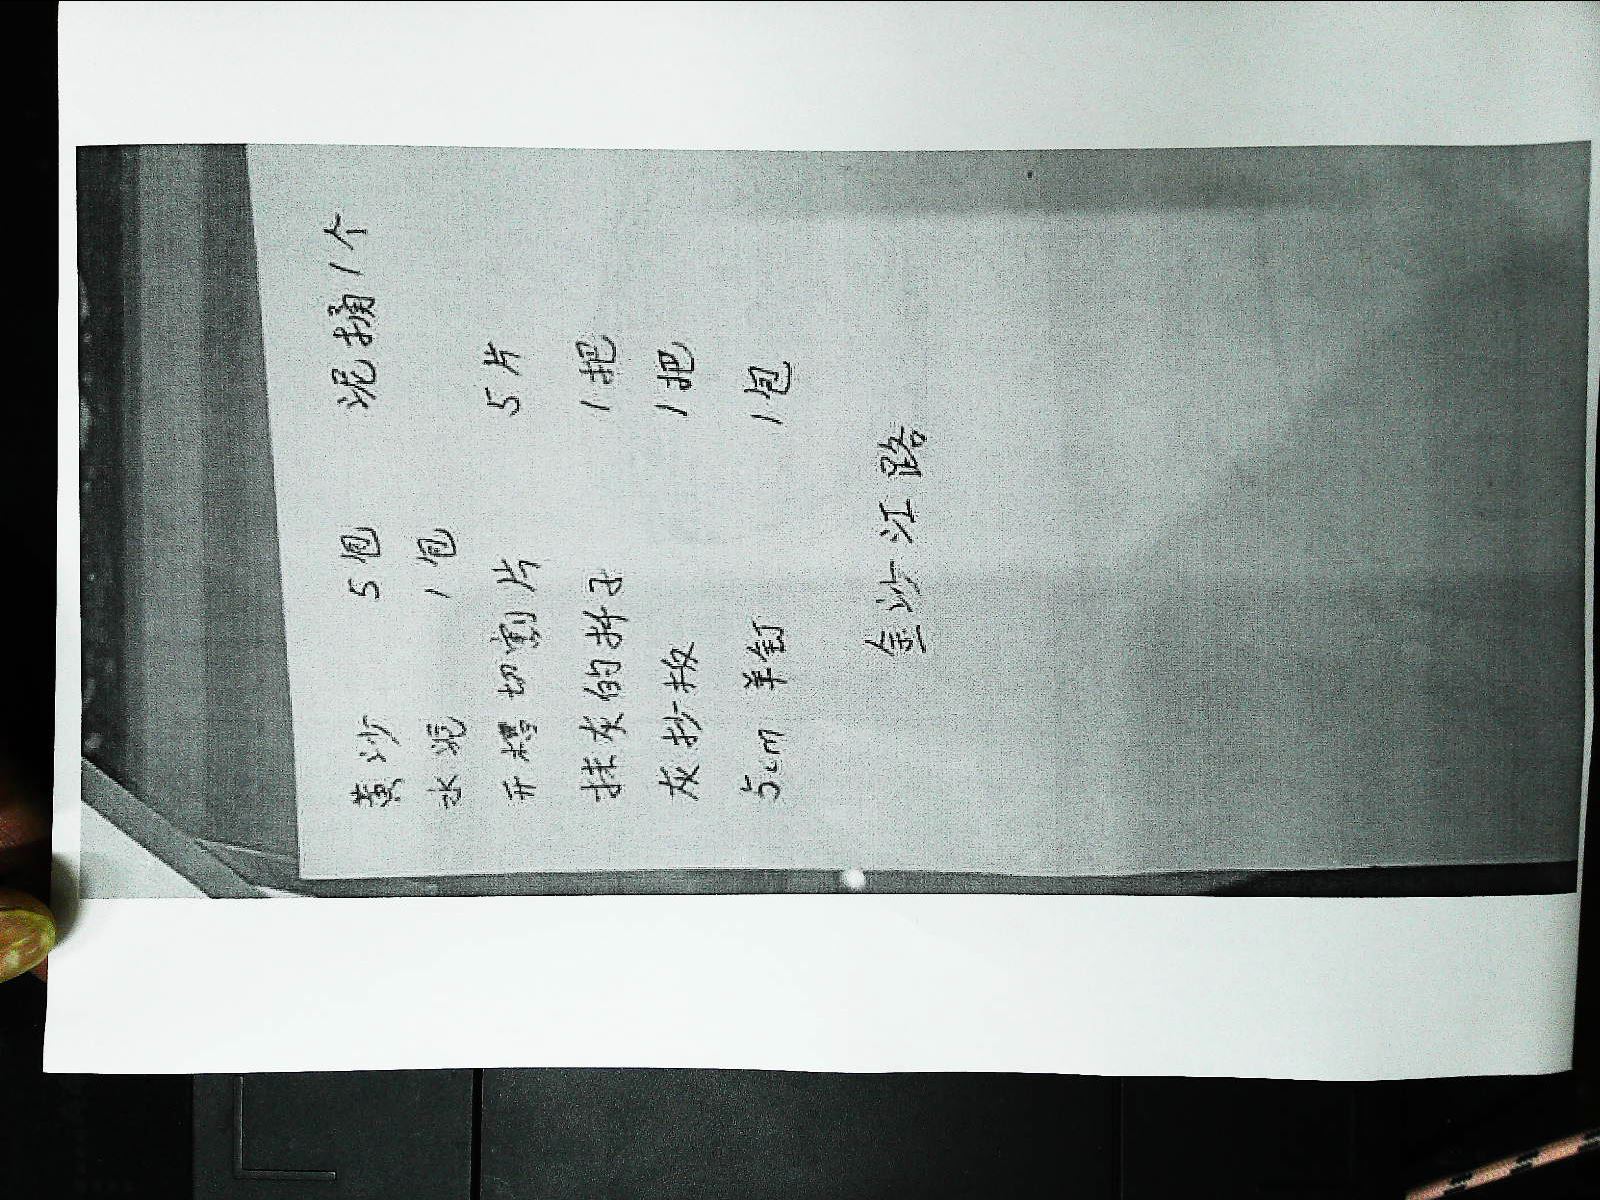 黄沙 5包 泥桶1个
水泥 1包
开槽切割片 5片
抹灰的抹子 1把
灰抄板 1把
5cm 羊钉 1包
金沙江路